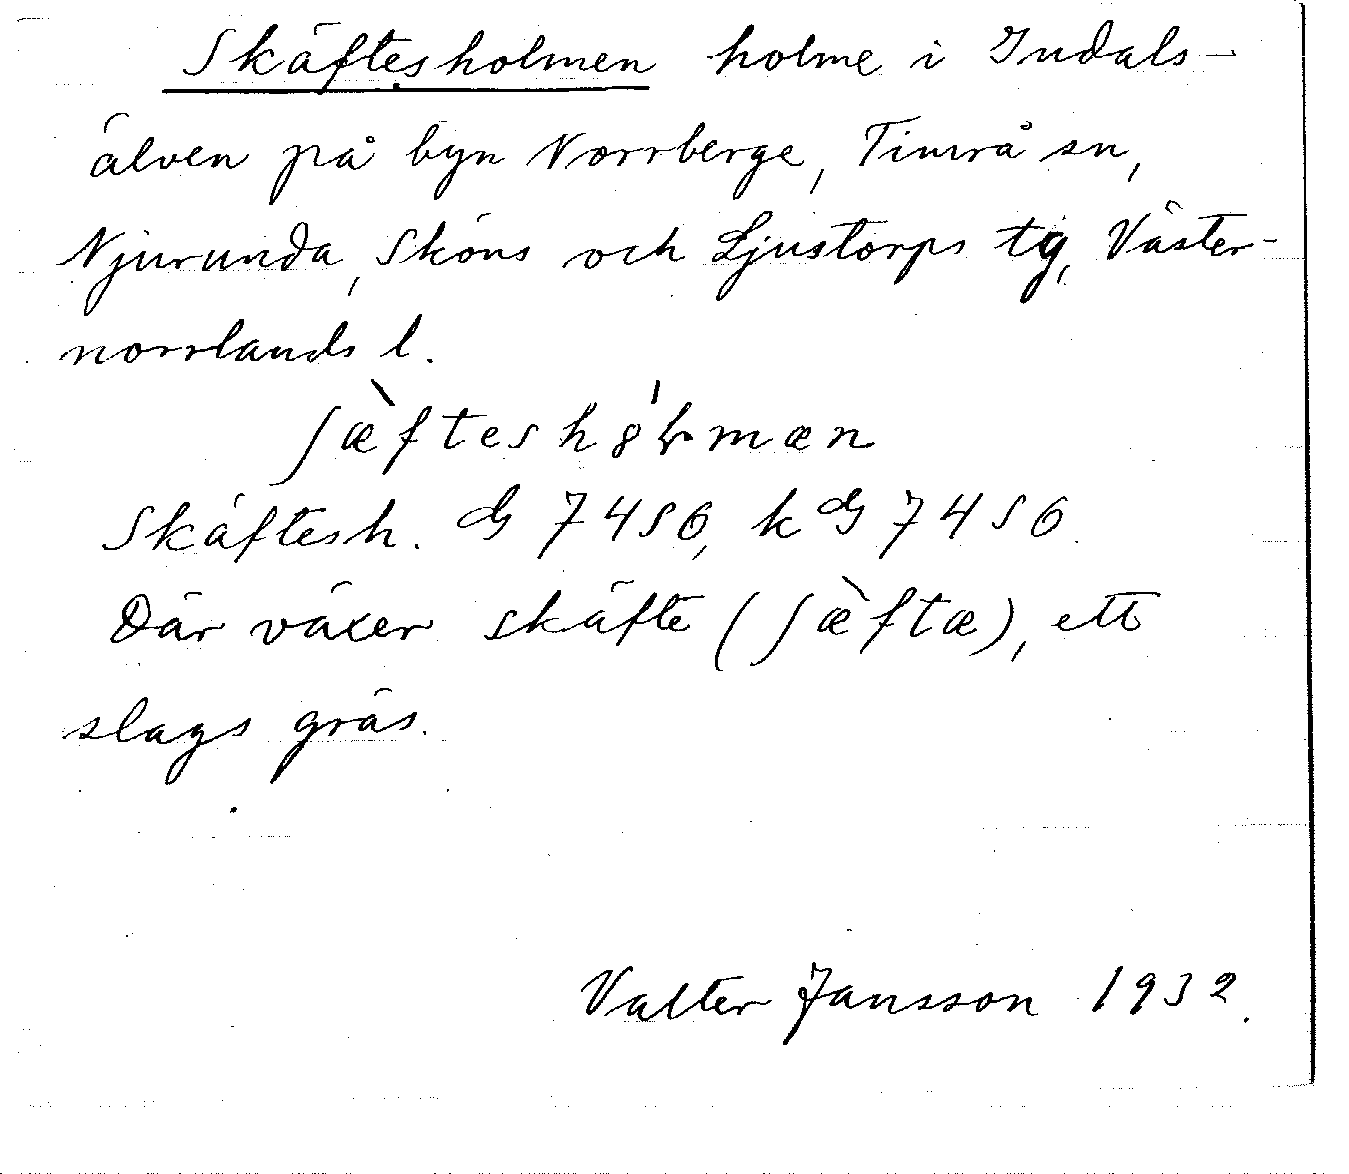 Skäftesholmen holme i Indals-
älven på byn Norrberge, Timrå sn,
Njurunda, Sköns och Ljustorps tg, Väster-
norrlands l.
ʃæ̀ftesh8̍ɽmæn
Skäftesh. G 7456, k G 7456
Där växer skäfte (ʃæ̀ftæ), ett
slags gräs.
Valter Jansson 1932.